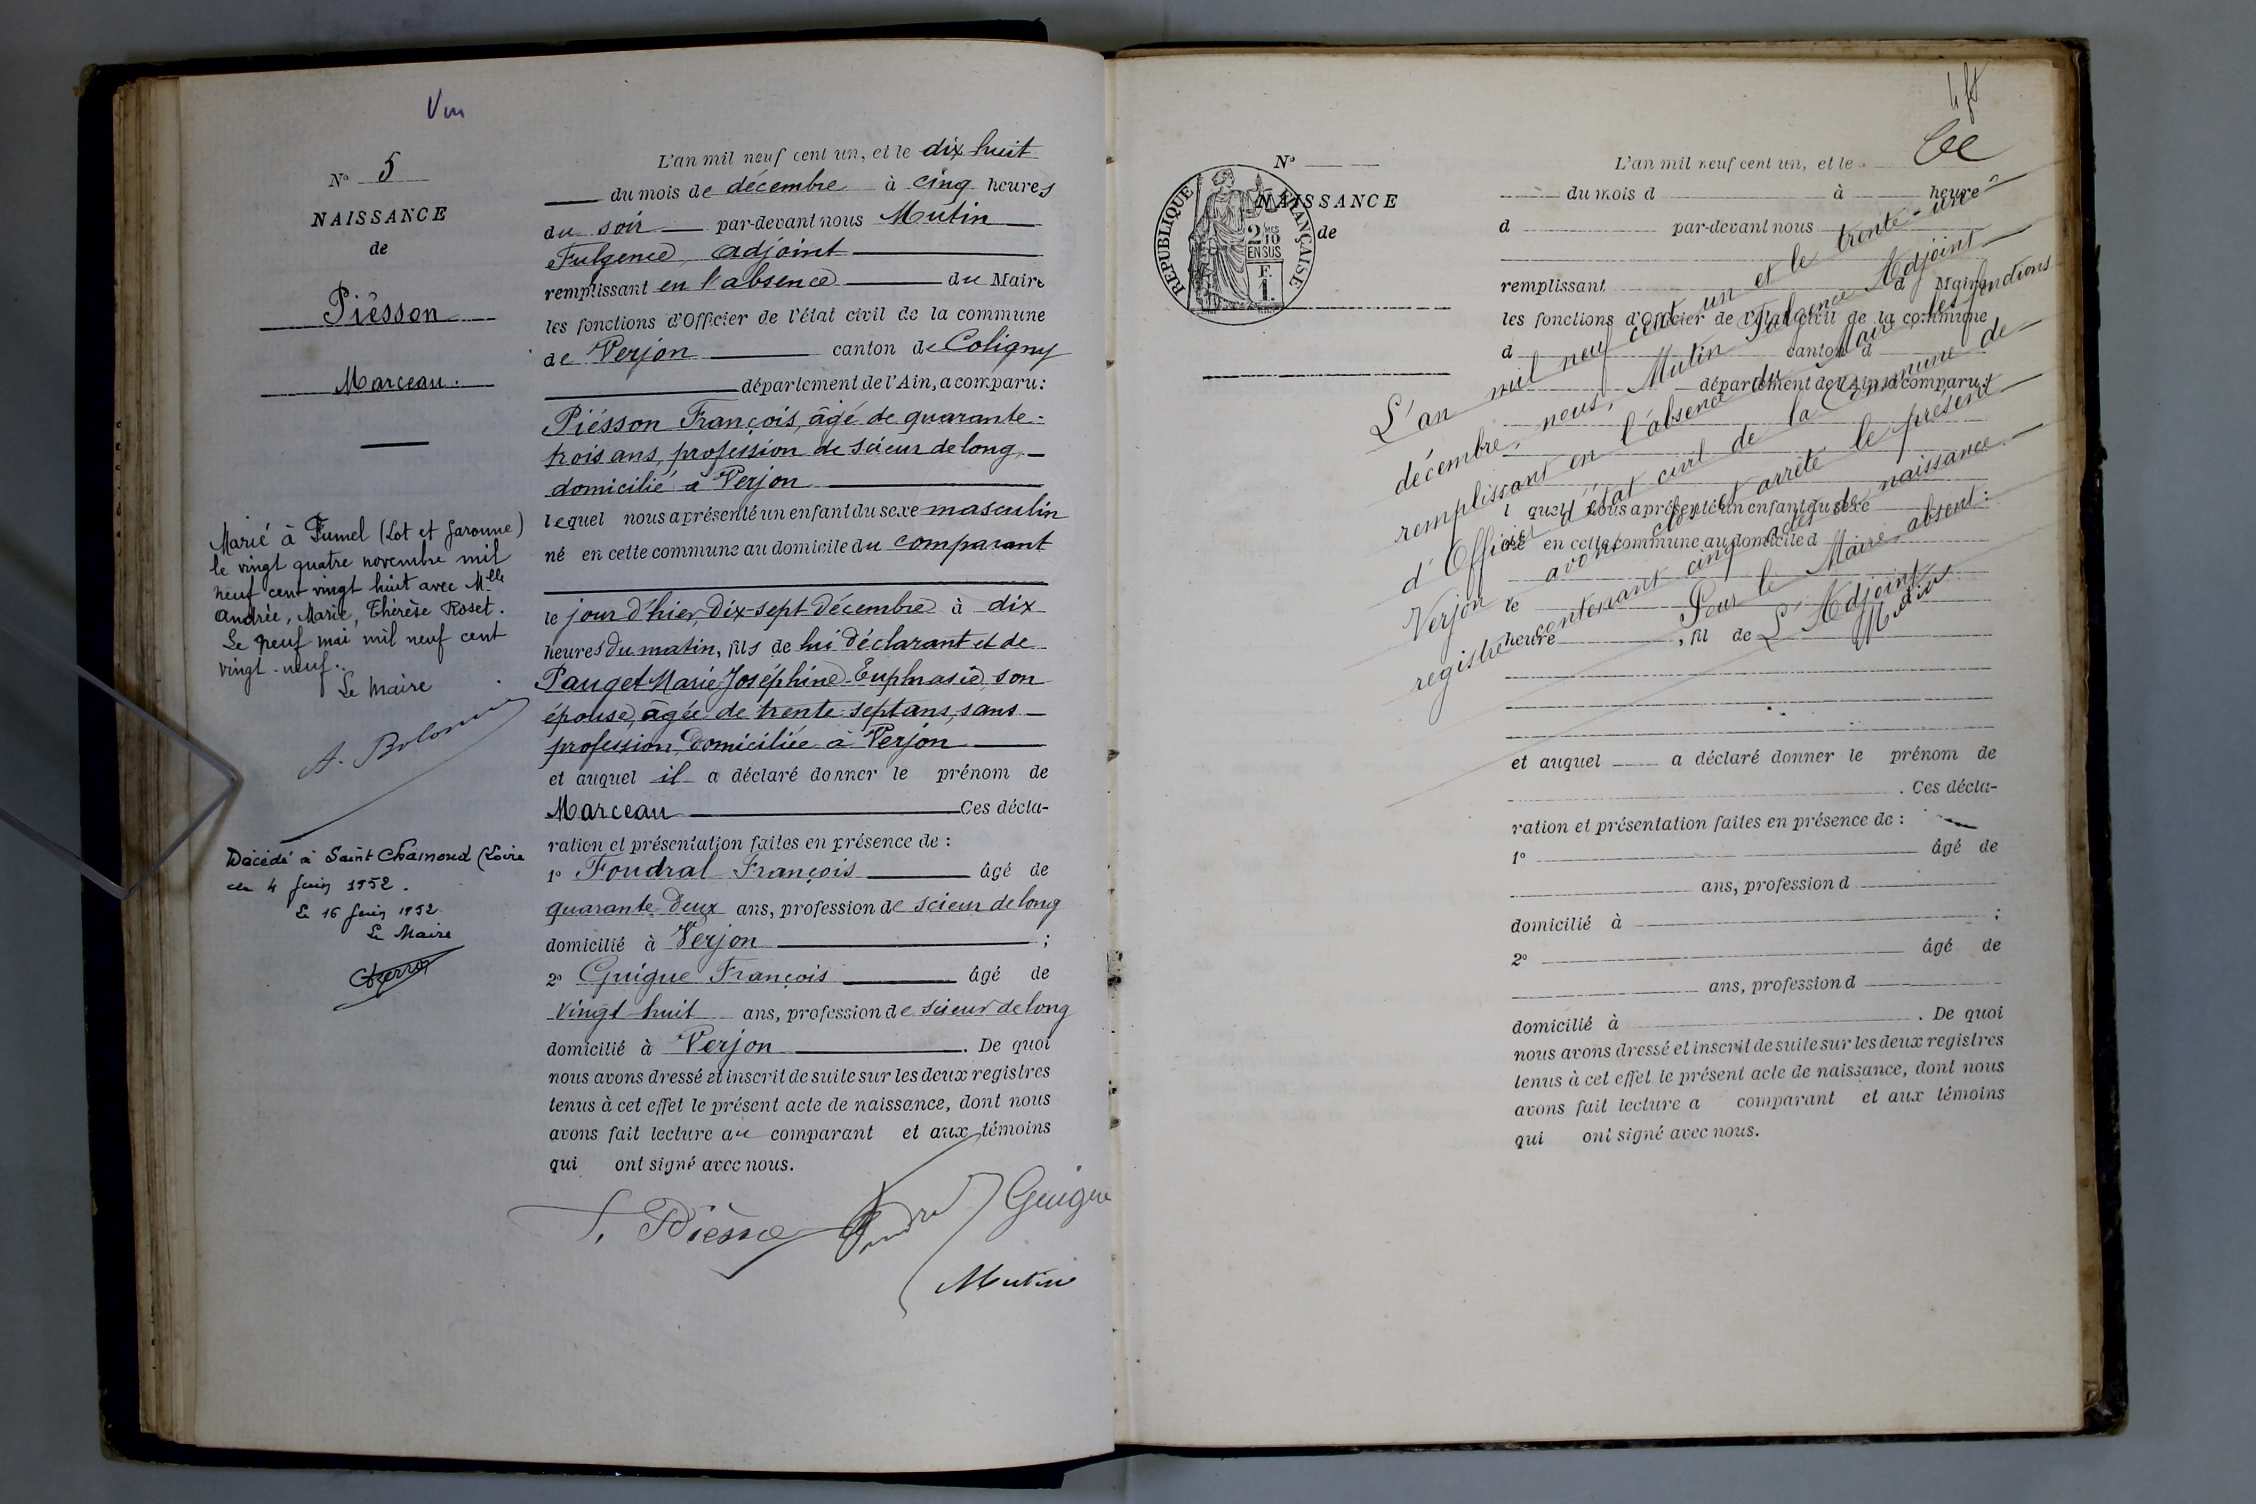 Vu
N° 5
NAISSANCE
de
Piésson
Marceau.
Marié à Fumel (Lot et Garonne)
le vingt quatre novembre mil
neuf cent vingt huit avec Mlle
Andrée, Marie, Thérèse Roset.
Le neuf mai mil neuf cent
vingt-neuf.
Le Maire
Décédé à Saint Chamond (Loire
le 4 Juin 1952.
Le 16 Juin 1952
Le Maire
L'an mil neuf cent un, et le dix huit
du mois de décembre à cinq heures
du soir par-devant nous Mutin
Fulgence, adjoint
remplissant en l'absence du Maire
les fonctions d'Officier de l'état civil de la commune
de Verjon canton de Coligny
département de l'Ain, a comparu:
Piésson François, âgé de quarante-
trois ans, profession de scieur de long,
domicilié à Verjon
lequel nous a présenté un enfant du sexe masculin
né en cette commune au domicile du comparant
le jour d'hier, Dix-sept Décembre à dix
heures du matin, fils de lui Déclarant et de
Pauget Marie Joséphine Euphrasie, son
épouse, âgée de trente-sept ans, sans
profession, Domiciliée à Verjon
et auquel il a déclaré donner le prénom de
Marceau Ces décla-
ration et présentation faites en présence de :
1° Foudral François âgé de
quarante Deux ans, profession de scieur de long
domicilié à Verjon ;
2° Guigue François âgé de
vingt huit ans, profession de scieur de long
domicilié à Verjon . De quoi
nous avons dressé et inscrit de suite sur les deux registres
tenus à cet effet le présent acte de naissance, dont nous
avons fait lecture au comparant et aux témoins
qui ont signé avec nous.
Guigue
Mutin
N°
NAISSANCE
de
REPUBLIQUE FRANÇAISE
2 MES
10
EN SUS
F.
1.
L'an mil neuf cent un, et le
du mois d à heure
d par-devant nous
remplissant d Maire
les fonctions d'Officier de l'état civil de la commune
d canton d
département de l'Ain, a comparu:
l quel nous a présenté un enfant du sexe
né en cette commune au domicile d
le
heure , fil de
L'an mil neuf cent un et le trente-un
décembre, nous, Mutin Fulgence Adjoint
remplissant en l'absence du Maire les fonctions
d'Officier d'état civil de la Commune de
Verjon avons clos et arrêté le présent
registre contenant cinq actes de naissance.
Pour le Maire absent:
L'Adjoint
Mutin
et auquel a déclaré donner le prénom de
. Ces décla-
ration et présentation faites en présence de :
1° âgé de
ans, profession d
domicilié à ;
2° âgé de
ans, profession d
domicilié à . De quoi
nous avons dressé et inscrit de suite sur les deux registres
tenus à cet effet le présent acte de naissance, dont nous
avons fait lecture a comparant et aux témoins
qui ont signé avec nous.